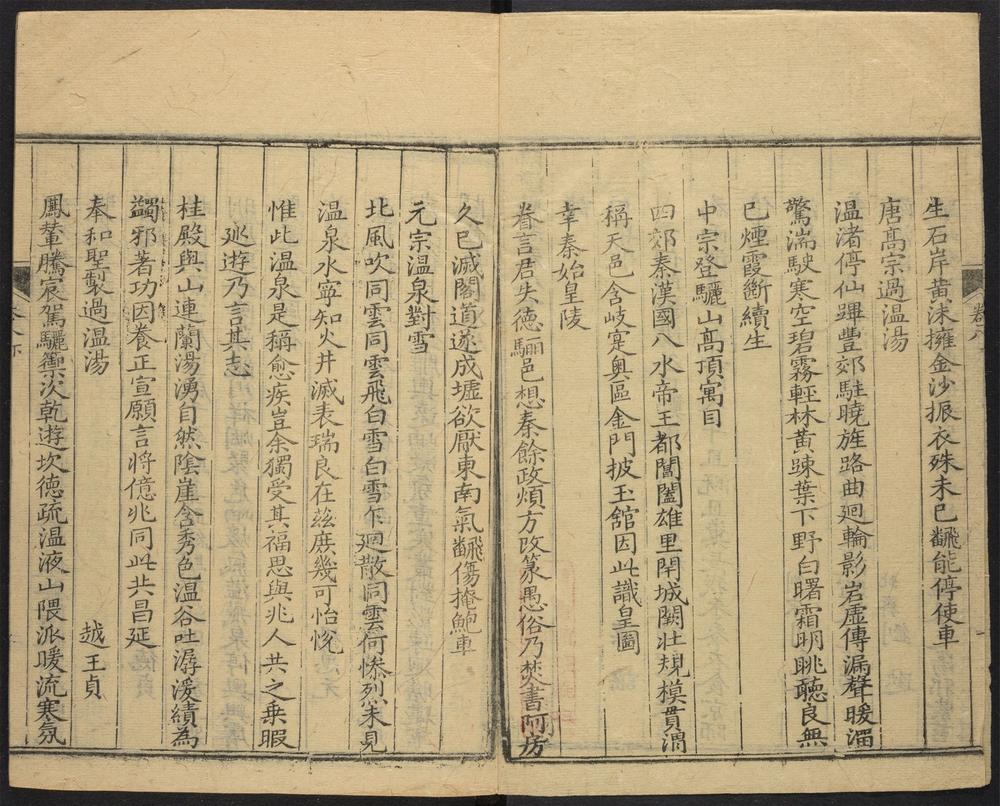 生石岸黄沫擁金沙振衣殊未已飜能停使車
唐高宗過温湯
温渚停仙蹕豐郊駐曉旌路曲廻輪影岩虚傳漏聲暖溜
驚湍駛寒空碧霧輕林黄踈葉下野白曙霜明眺聽良無
已煙霞斷續生
中宗登驪山高頂寓目
四郊秦漢國八水帝王都閶闔雄里閈城闕壯規模貫渭
稱天邑含岐寔奥區金門披玉舘因此識皇圖
幸秦始皇陵
眷言君失德驪邑想秦餘政煩方改篆愚俗乃焚書阿房
久已滅閣道遂成墟欲厭東南氣飜傷掩鮑車
元宗温泉對雪
北風吹同雲同雲飛白雪白雪乍廻散同雲何慘烈未見
温泉水寧知火井滅表瑞良在兹庶幾可怡恱
惟此温泉是稱愈疾豈余獨受其福思與兆人共之乗暇
廵遊乃言其志
桂殿與山連蘭湯湧自然陰崖含秀色温谷吐潺湲績為
蠲邪著功因養正宣願言將億兆同此共昌延
奉和聖製過温湯
越王貞
鳳輦騰宸駕驪籞次乾遊坎德疏温液山隈派暖流寒氛
卷八